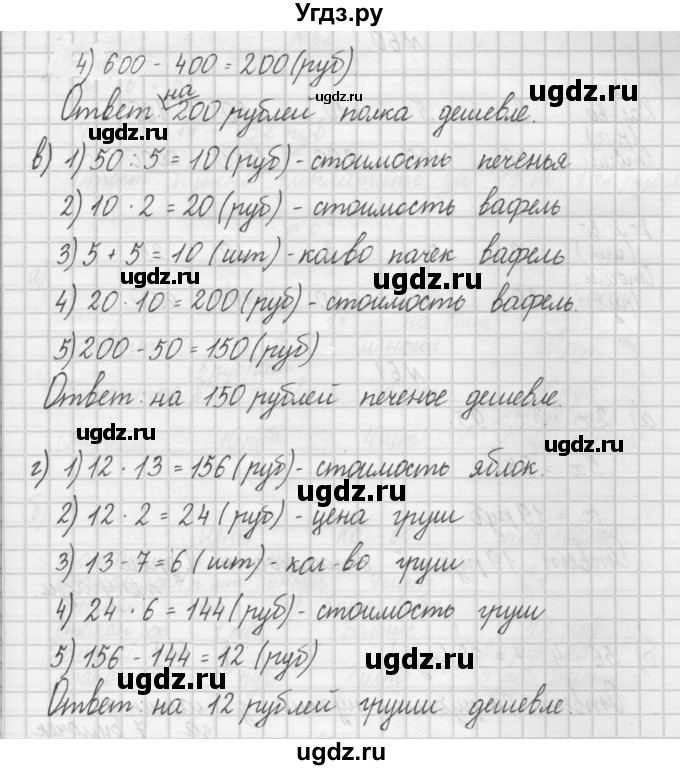 Угдз.ру
4) 600 - 400 = 200 (руб)
Ответ: на 200 рублей полка дешевле.
в) 1) 50 : 5 = 10 (руб) - стоимость печенья
2) 10 · 2 = 20 (руб) - стоимость вафель
3) 5 + 5 = 10 (шт) - колво пачек вафель
4) 20 · 10 = 200 (руб) - стоимость вафель.
5) 200 - 50 = 150 (руб)
Ответ: на 150 рублей печенье дешевле.
г) 1) 12 · 13 = 156 (руб) - стоимость яблок.
2) 12 · 2 = 24 (руб) - цена груш
3) 13 - 7 = 6 (шт) - кол-во груш
4) 24 · 6 = 144 (руб) - стоимость груш
5) 156 - 144 = 12 (руб)
Ответ: на 12 рублей груши дешевле.
ugdz.ru
ugdz.ru
ugdz.ru
ugdz.ru
ugdz.ru
ugdz.ru
ugdz.ru
ugdz.ru
ugdz.ru
ugdz.ru
ugdz.ru